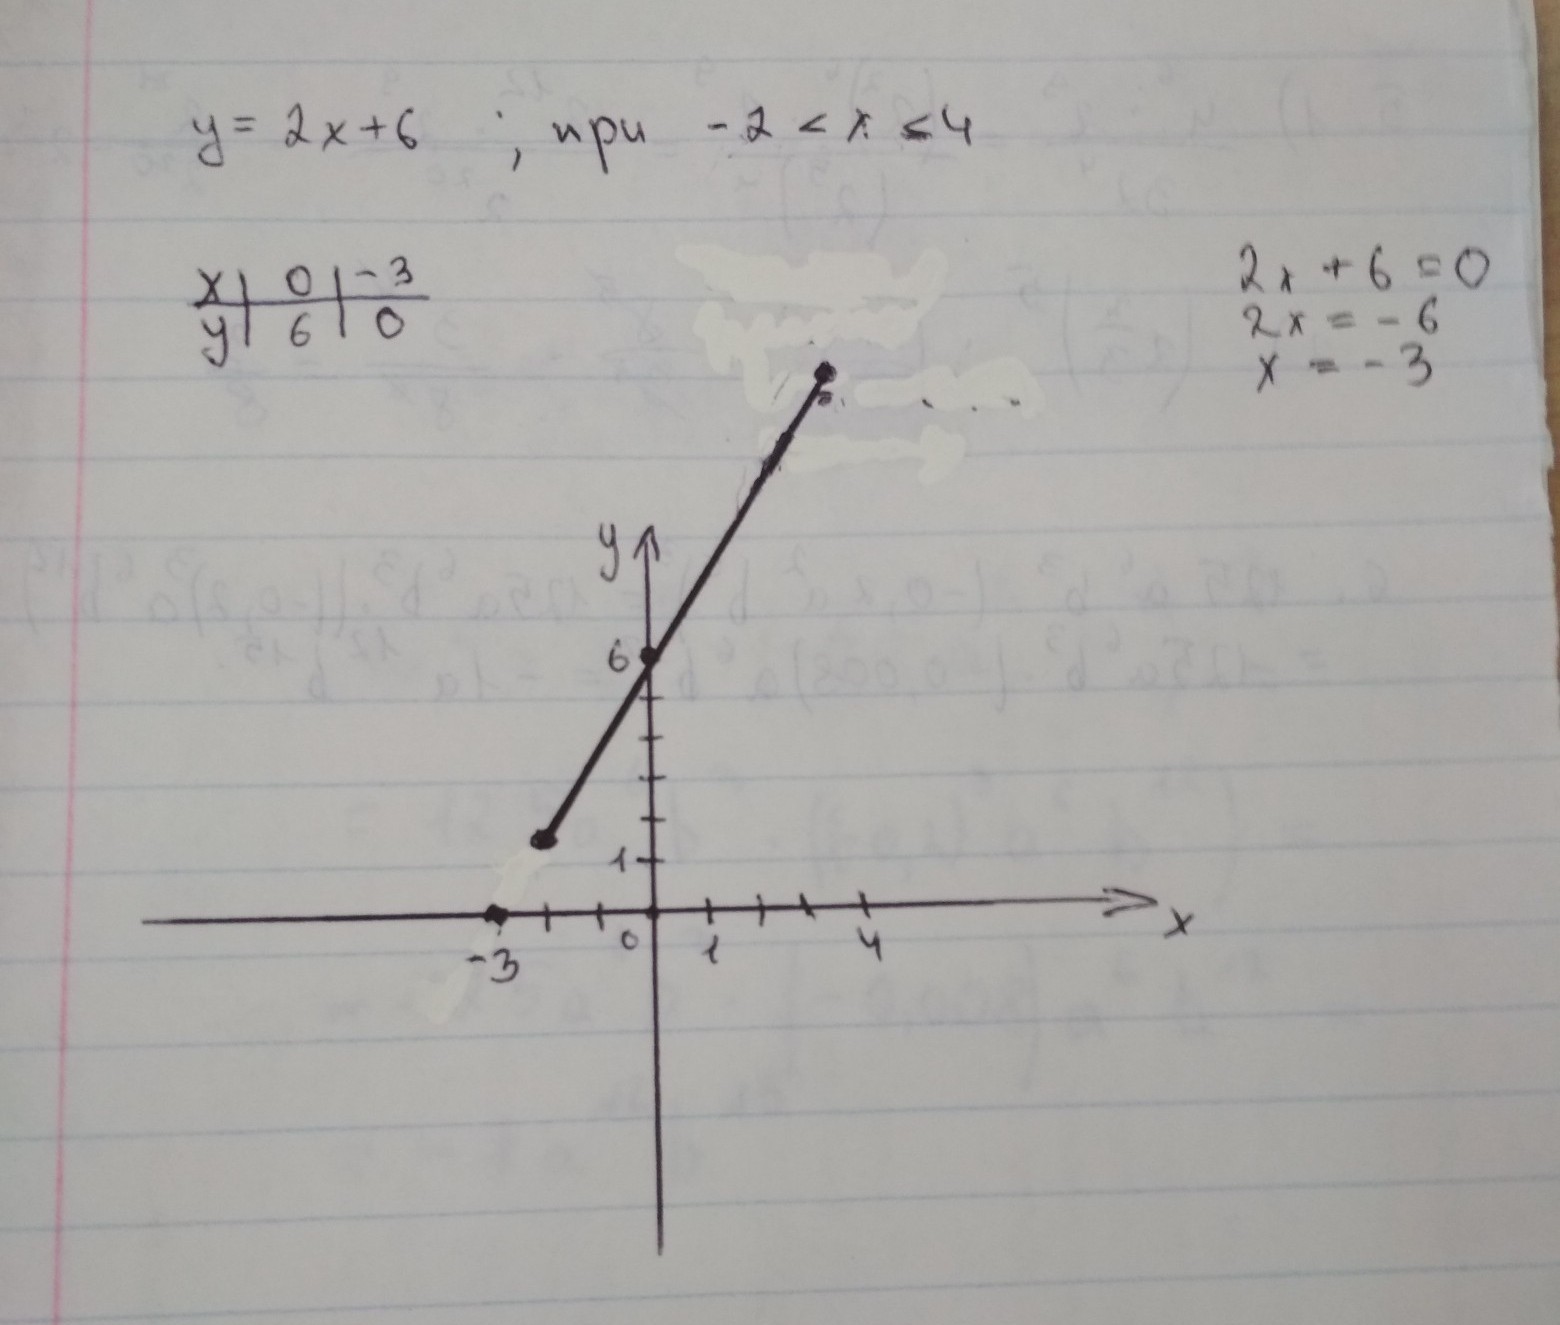 y = 2x+6 ; при -2 < x ≤ 4
x | 0 | -3
y | 6 | 0
2x + 6 = 0
2x = - 6
x = - 3
y
6
1
-3 0 1 4 x